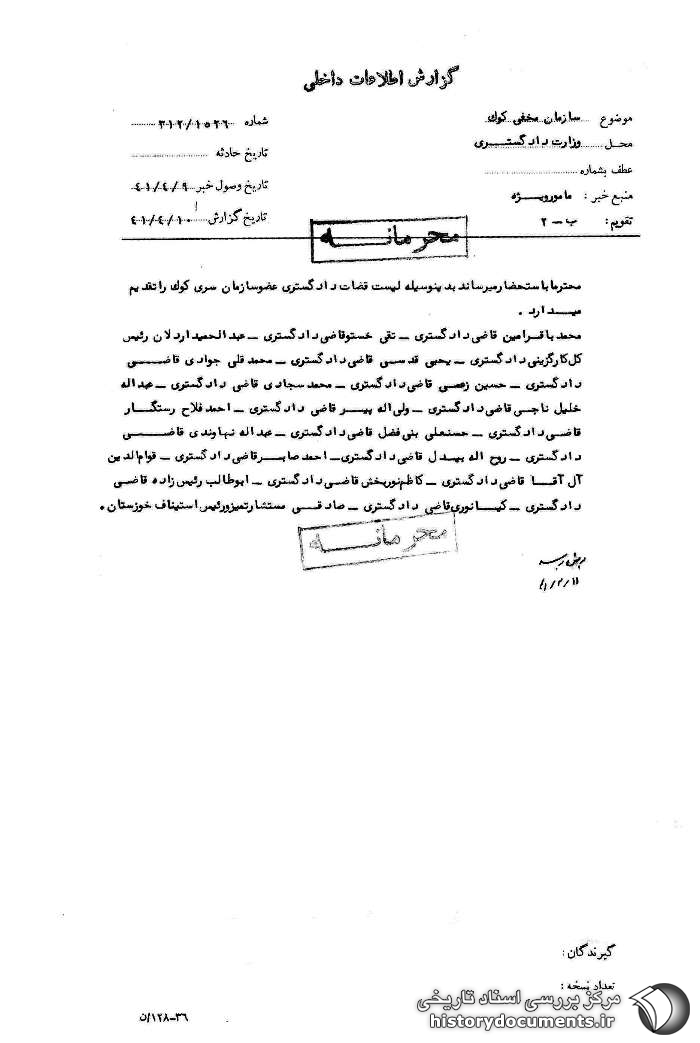 گزارش اطلاعات داخلی
موضوع سازمان مخفی کوك
محل وزارت دادگستری
عطف بشماره
منبع خبر : مامورویژه
تقویم: ب – ۲
شماره ۳۱۲/۱۵۲۶
تاریخ حادثه
تاریخ وصول خبر ۴۱/۴/۹
تاریخ گزارش ۴۱/۴/۱۰
محرمانه
محترما باستحضارمیرساند بدینوسیله لیست قضات دادگستری عضوسازمان سری کوك راتقدیم
میدارد .
محمد باقرامین قاضی دادگستری – تقی خستوقاضی دادگستری – عبدالحمیداردلان رئیس
کل کارگزینی دادگستری – یحیی قدسی قاضی دادگستری – محمد قلی جوادی قاضی
دادگستری – حسین زعیمی قاضی دادگستری – محمد سجادی قاضی دادگستری – عبداله
خلیل ناجی قاضی دادگستری – ولی اله بیر قاضی دادگستری – احمد فلاح رستگار
قاضی دادگستری – حسنعلی بنی فضل قاضی دادگستری – عبداله نهاوندی قاضی
دادگستری – روح اله بیدل قاضی دادگستری – احمد صابرقاضی دادگستری – قوام الدین
آل آقا قاضی دادگستری – کاظم نوربخش قاضی دادگستری – ابوطالب رئیس زاده قاضی
دادگستری – کیانوری قاضی دادگستری – صادقی مستشارتمیزورئیس استیناف خوزستان .
محرمانه
۴۱/۴/۱۱
گیرندگان:
تعداد نسخه :
۱۲۸-۳۶/ن
مرکز بررسی اسناد تاریخی
historydocuments.ir